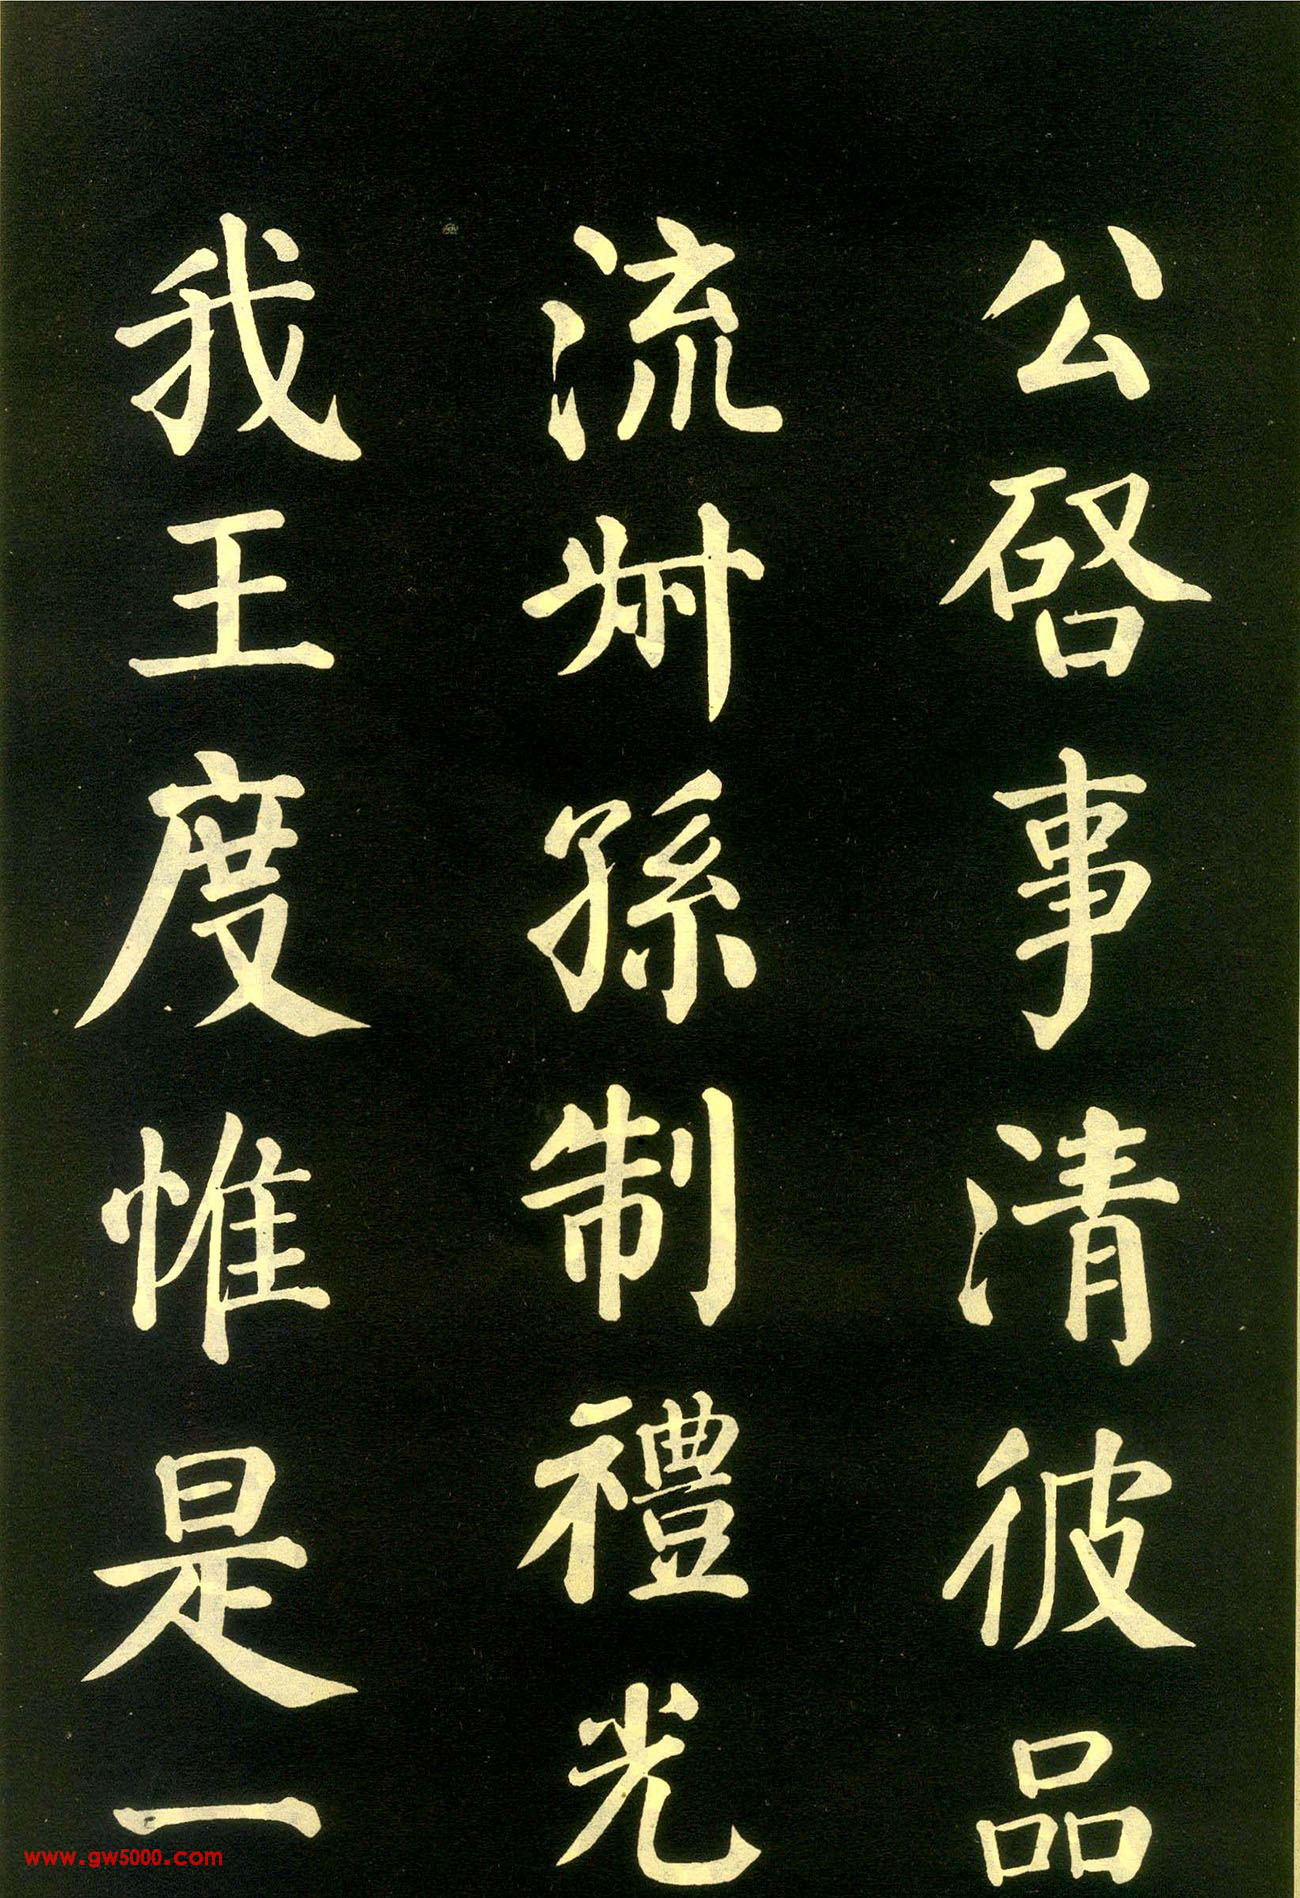 公啓事清彼品
流叔孫制禮光
我王度惟是一
www.gw5000.com